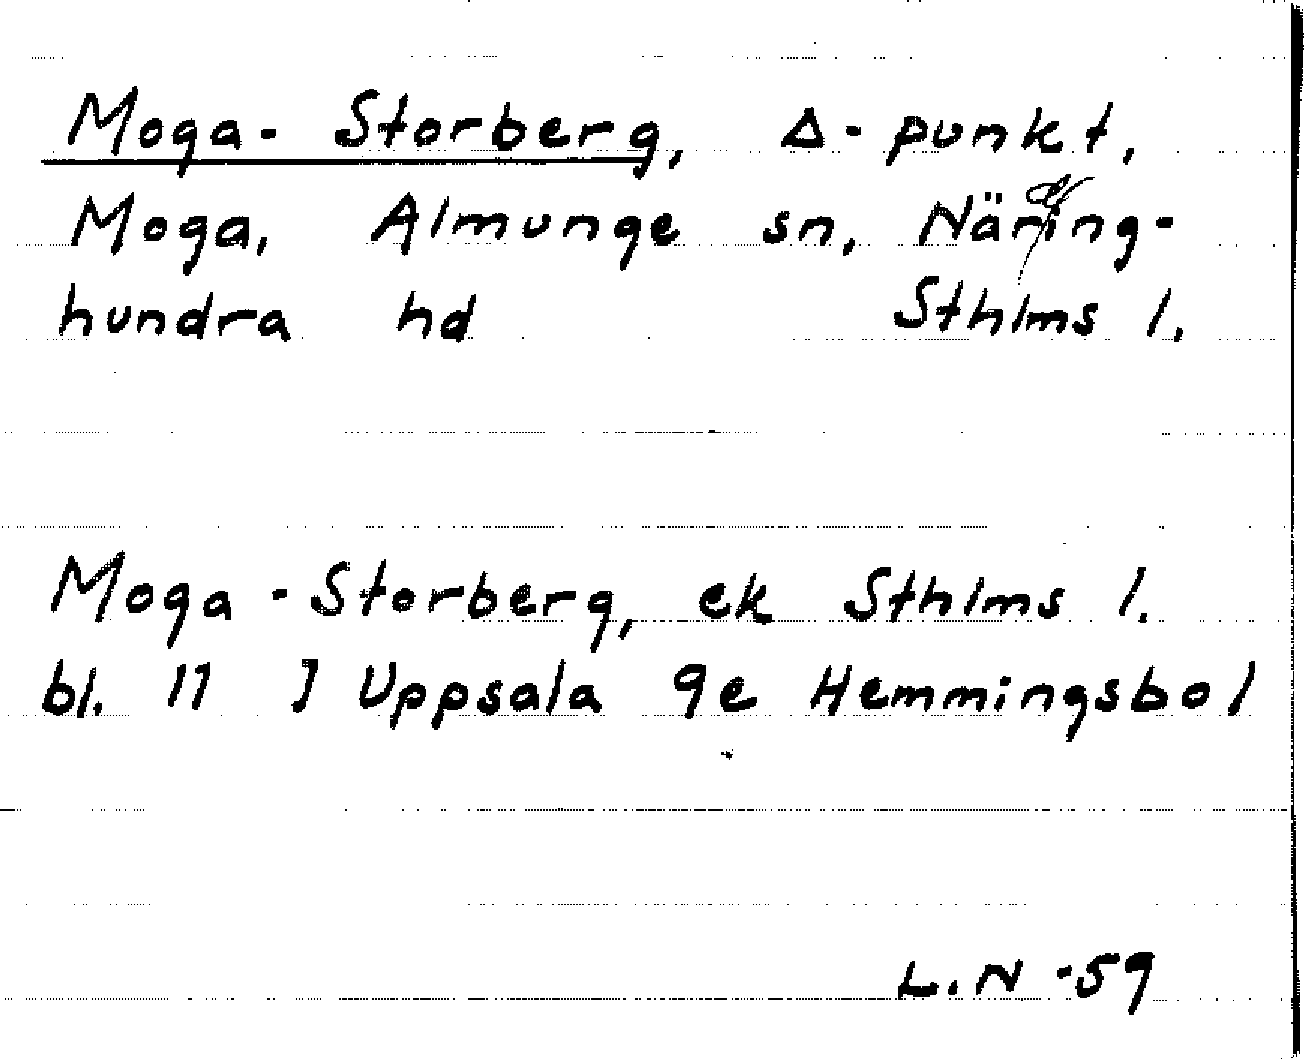 Moga-Storberg, Δ-punkt,
Moga, Almunge sn, Näring-
hundra hd Sthlms l.
Moga-Storberg, ek Sthlms l.
bl. 11 J Uppsala 9e Hemmingsbol
L.N -59